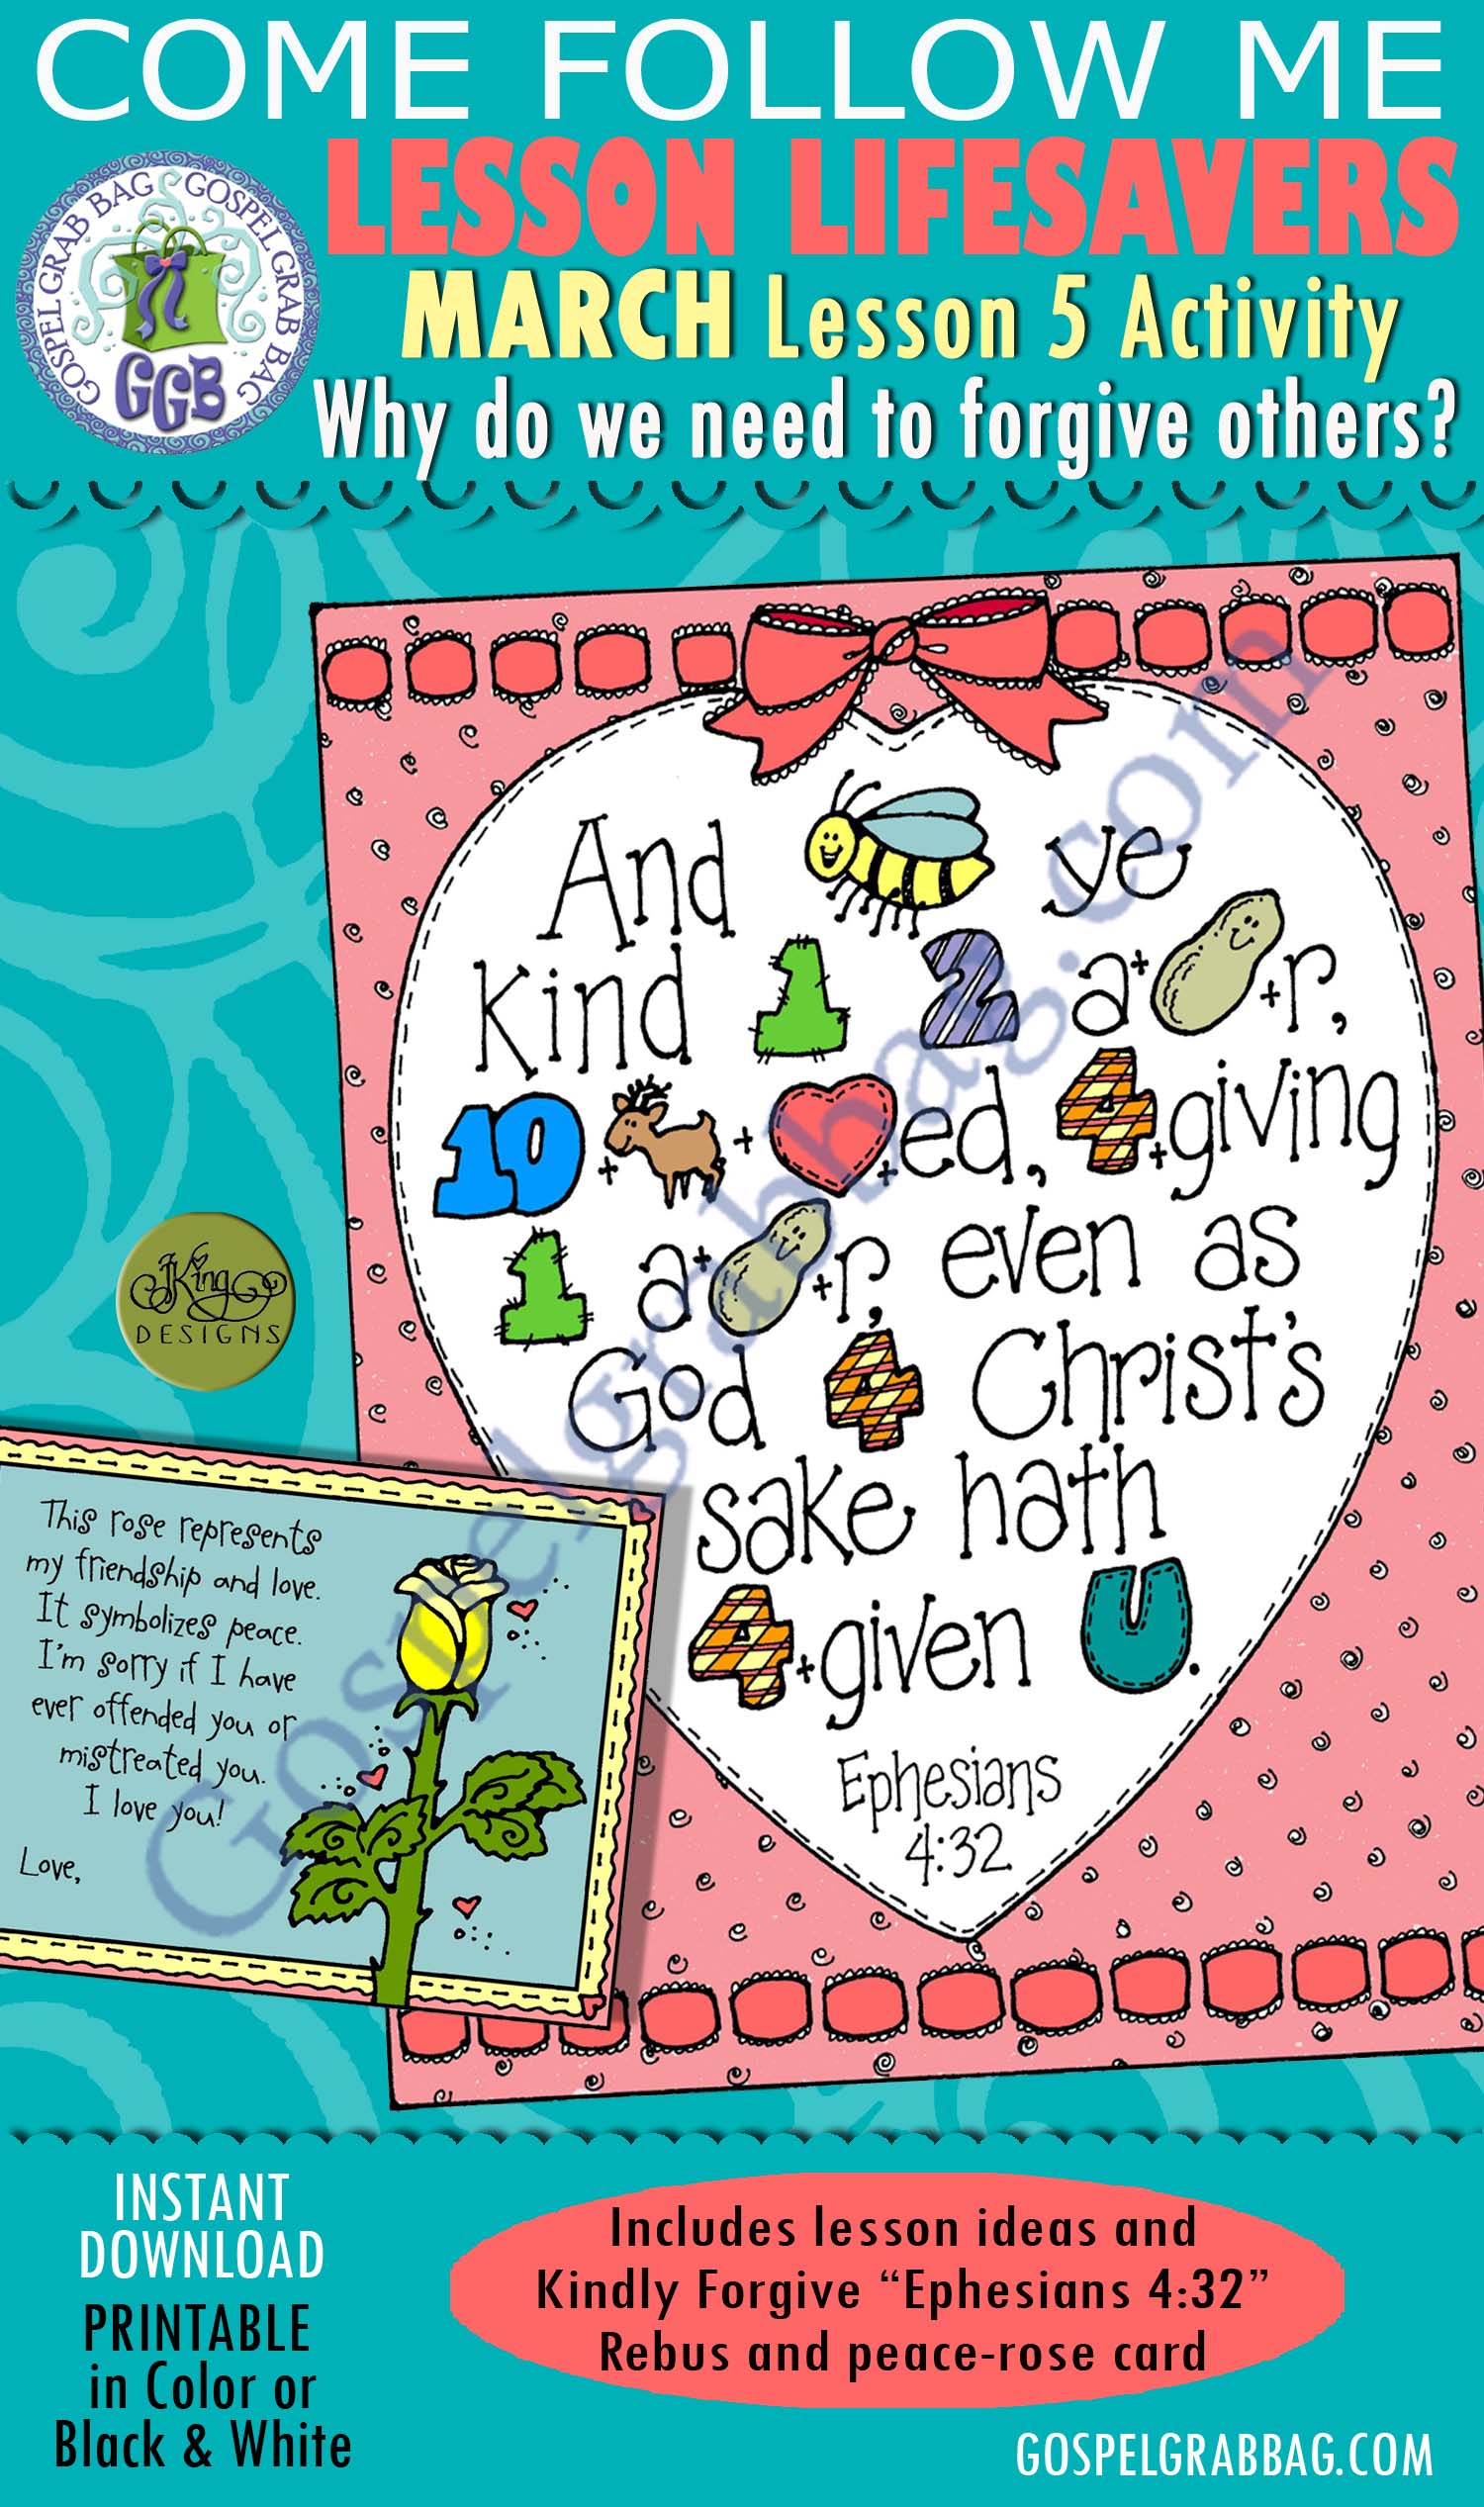 COME FOLLOW ME
LESSON LIFESAVERS
GOSPEL GRAB BAG GOSPEL GRAB BAG
GGB
MARCH Lesson 5 Activity
Why do we need to forgive others?
And ye
kind 1 2 a++r,
10+++ed, 4+giving
1 a++r, even as
God 4 Christ's
sake hath
4+given U.
Ephesians
4:32
JKing
DESIGNS
This rose represents
my friendship and love.
It symbolizes peace.
I'm sorry if I have
ever offended you or
mistreated you.
I love you!
Love,
Gospelgrabbag.com
INSTANT
DOWNLOAD
PRINTABLE
in Color or
Black & White
Includes lesson ideas and
Kindly Forgive “Ephesians 4:32”
Rebus and peace-rose card
GOSPELGRABBAG.COM